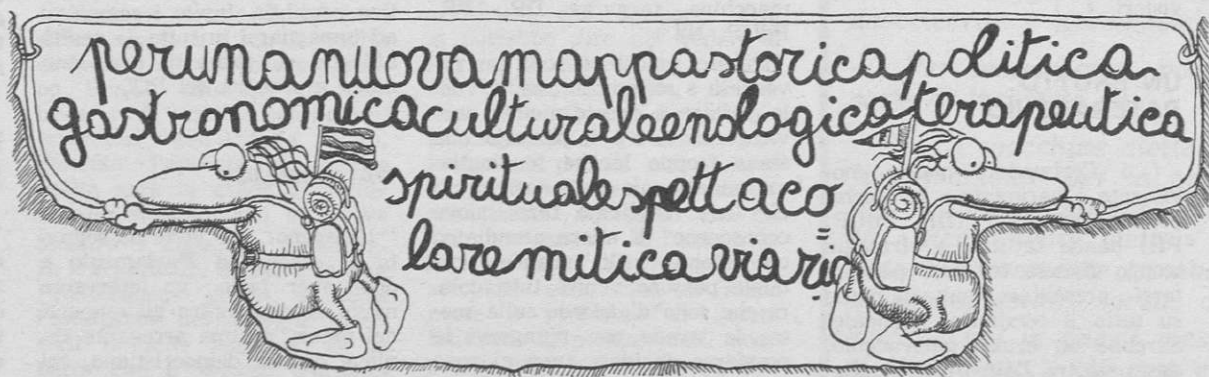 perunanuovamappastoricapolitica
gastronomicaculturaleenologicaterapeutica
spiritualespettaco=
laremiticaviaria